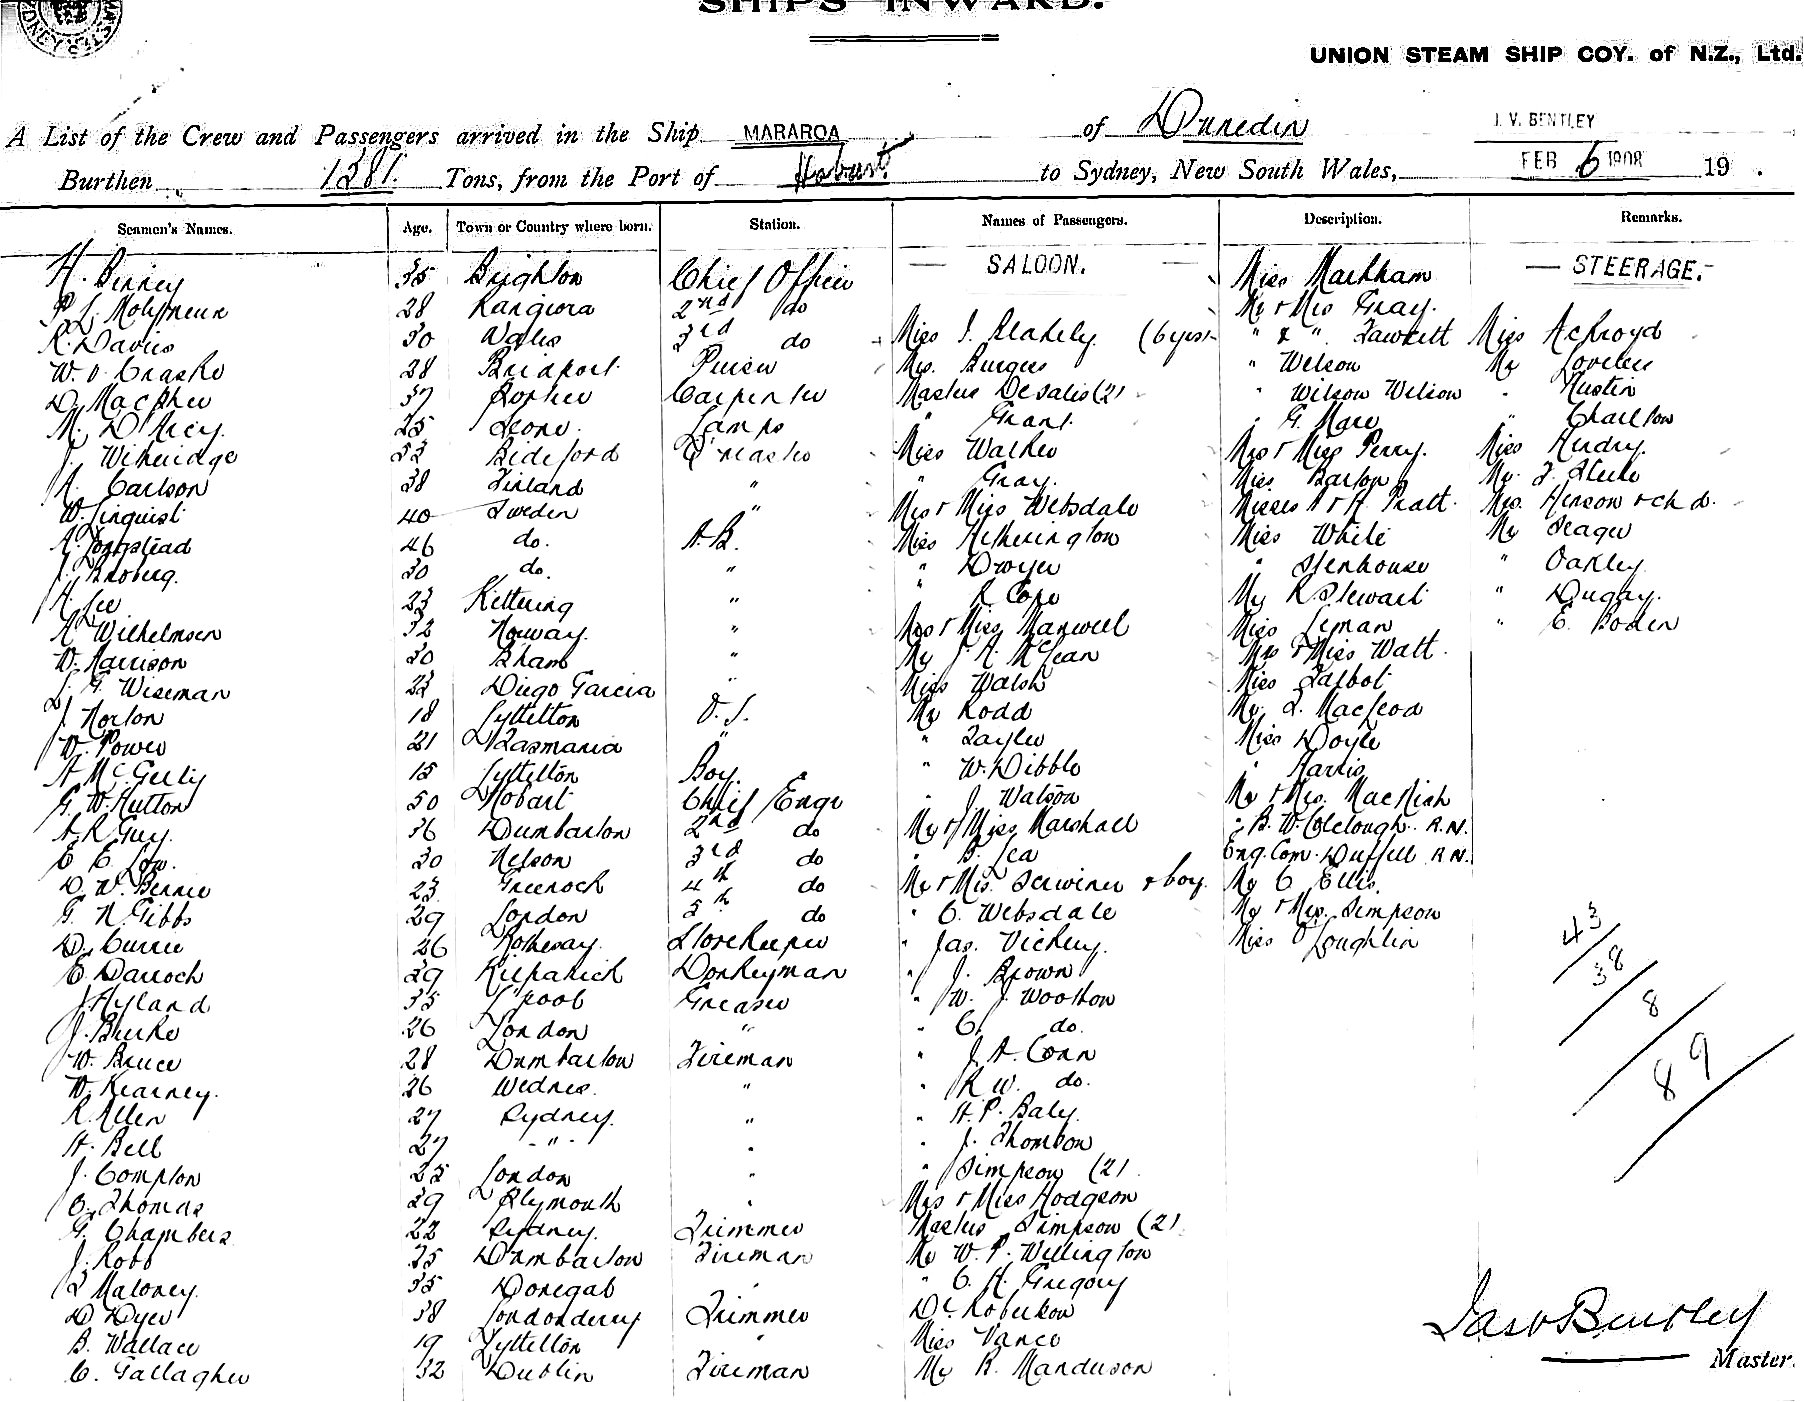 SHIPS INWARD.
UNION STEAM SHIP COY. of N.Z., Ltd.
A List of the Crew and Passengers arrived in the Ship MARAROA of Dunedin J. V. BENTLEY
Burthen 1381. Tons, from the Port of Hobart to Sydney, New South Wales, FEB 6 1908 19 .
Seamen's Names. Age. Town or Country where born. Station. Names of Passengers. Description. Remarks.
H. Binney 35 Brighton Chief Officer — SALOON. — Miss Markham — STEERAGE. —
P. L. Molyneux 28 Rangiora 2nd do Mr & Mrs Gray.
R. Davies 30 Wales 3rd do Miss J. Blakely (6 yrs) " & " Fawkett Miss Ackroyd
W. V. Craske 28 Bridport. Purser Mrs. Burgess " Wilson Mr Lovelee
D. MacPhee 37 Carpenter Masters DeSalis (2) " Wilson Wilson " Austin
M. D'Arcy. 25 Lamps " Grant. " G. Mace " Charlton
J. Witheridge 53 Bideford Q'master Miss Walker Mrs & Miss Perry. Miss Audry.
A. Carlson 38 Finland " " Gray. Miss Barton Mr. F. Steele
W. Linquist 40 Sweden " Mrs & Miss Websdale Misses A & A. Pratt. Mrs. Henson & ch d.
A. Longstead 46 do. A.B. Miss Hetherington Miss White Mr Seager
J. Broberg. 30 do. " " Dwyer " Stenhouse " Oakley
A. Lee 23 Kettering " " R Cope Mr R Stewart " Dugay.
A. Wilhelmsen 32 Norway. " Mrs & Miss Maxwell Miss Leman " E. Boden
W. Harrison 30 Bham " Mr J. A. McLean Mrs & Miss Watt.
L. G. Wiseman 22 Diego Garcia " Miss Walsh Miss Talbot
J. Norton 18 Lyttelton O.S. Mr Rodd Mr. L. MacLeod
W. Power 21 Tasmania " " Tayler Miss Doyle
A McGeely 15 Lyttelton Boy. " W. Dibble " Harris
G. W. Hutton 50 Hobart Chief Engr " J. Watson Mr & Mrs. MacNish
A. R Guy. 36 Dumbarton 2nd do Mr & Miss Marshall " B. W. Colclough. R.N.
E. E. Low. 30 Nelson 3rd do " B. Lea Eng. Com. Duffell R N.
D. W. Bennie 23 Greenock 4th do Mr & Mrs. Scrivener & boy. Mr C Ellis.
G. N. Gibbs 29 London 5th do " C. Websdale Mr & Mrs. Simpson
D. Currie 26 Rothesay. Storekeeper " Jas. Vickery. Miss O'Loughlin
E. Darroch 29 Kilpatrick Donkeyman " J. Brown 43
J Hyland 35 L'pool Greaser " W. J. Wootton 38
J. Burke 26 London " " C. do. 8
W. Bruce 28 Dumbarton Fireman " J. A. Conn 89
W. Kearney. 26 " " R W. do.
R. Allen 27 Sydney. " " H. P. Baly.
H. Bell 27 - " - " " J. Thomson
J. Compton 25 London " " Simpson (2)
C. Thomas 29 Plymouth " Mrs & Miss Hodgson
G. Chambers 22 Sydney. Trimmer Masters Simpson (2)
J. Robb 25 Dumbarton Fireman Mr W. P. Wellington
L Maloney. 35 Donegal " " C. H. Gregory
D Dyer 38 Londonderry Trimmer Dr. Robertson
B. Wallace 19 Lyttelton " Miss Vance
C. Gallagher 32 Dublin Fireman Mr R. Manderson
Jas V Bentley
Master.